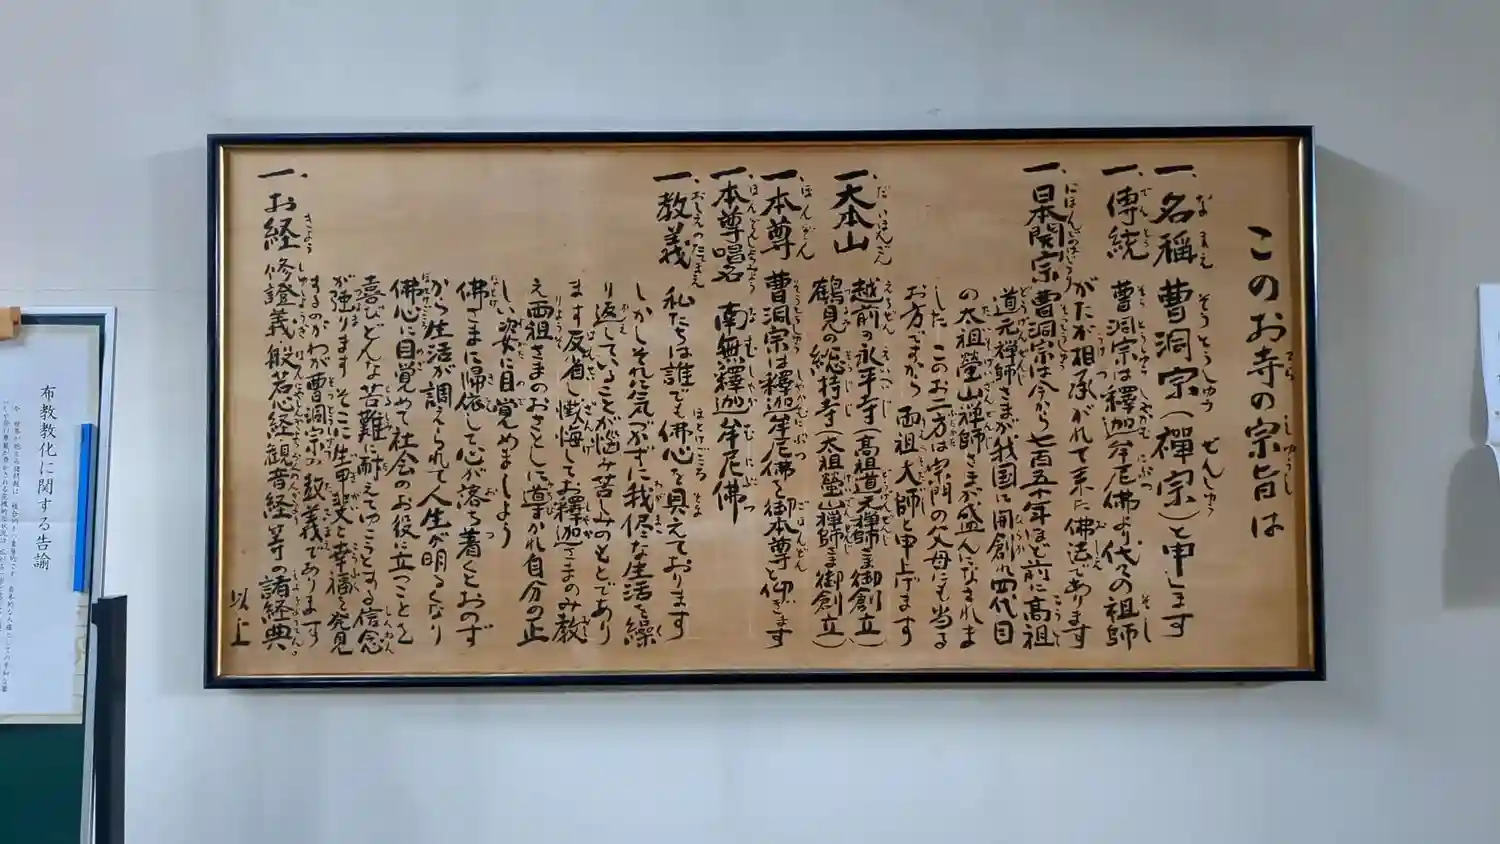 このお寺の宗旨は
一、名稱 曹洞宗(禪宗)と申します
一、傳統 曹洞宗は釋迦牟尼佛より代々の祖師
がたが相承がれて来た佛法であります
一、日本開宗 曹洞宗は今から七百五十年ほど前に高祖
道元禅師さまが我国に開創れ四代目
の太祖瑩山禅師さまが盛んになされま
した このお二方は宗門の父母にも当る
お方ですから 両祖大師と申上げます
一、大本山 越前の永平寺(高祖道元禅師さま御創立)
鶴見の総持寺(太祖瑩山禅師さま御創立)
一、本尊 曹洞宗は釋迦牟尼佛を御本尊と仰ぎます
一、本尊唱名 南無釋迦牟尼佛
一、教義 私たちは誰でも佛心を具えております
しかしそれに気づかずに我侭な生活を繰
り返していることが悩み苦しみのもとであり
ます 反省し懴悔してお釋迦さまのみ教
え両祖さまのおさとしに導かれ自分の正
しい姿に目覚めましよう
佛さまに帰依して心が落ち着くとおのず
から生活が調えられて人生が明るくなり
佛心に目覚めて社会のお役に立つことを
喜びどんな苦難にも耐えてゆこうとする信念
が強ります そこに生甲斐と幸福を発見
するのがわが曹洞宗の教義であります
一、お経 修證義、般若心経、観音経、等の諸経典。
以上
布教教化に関する告諭